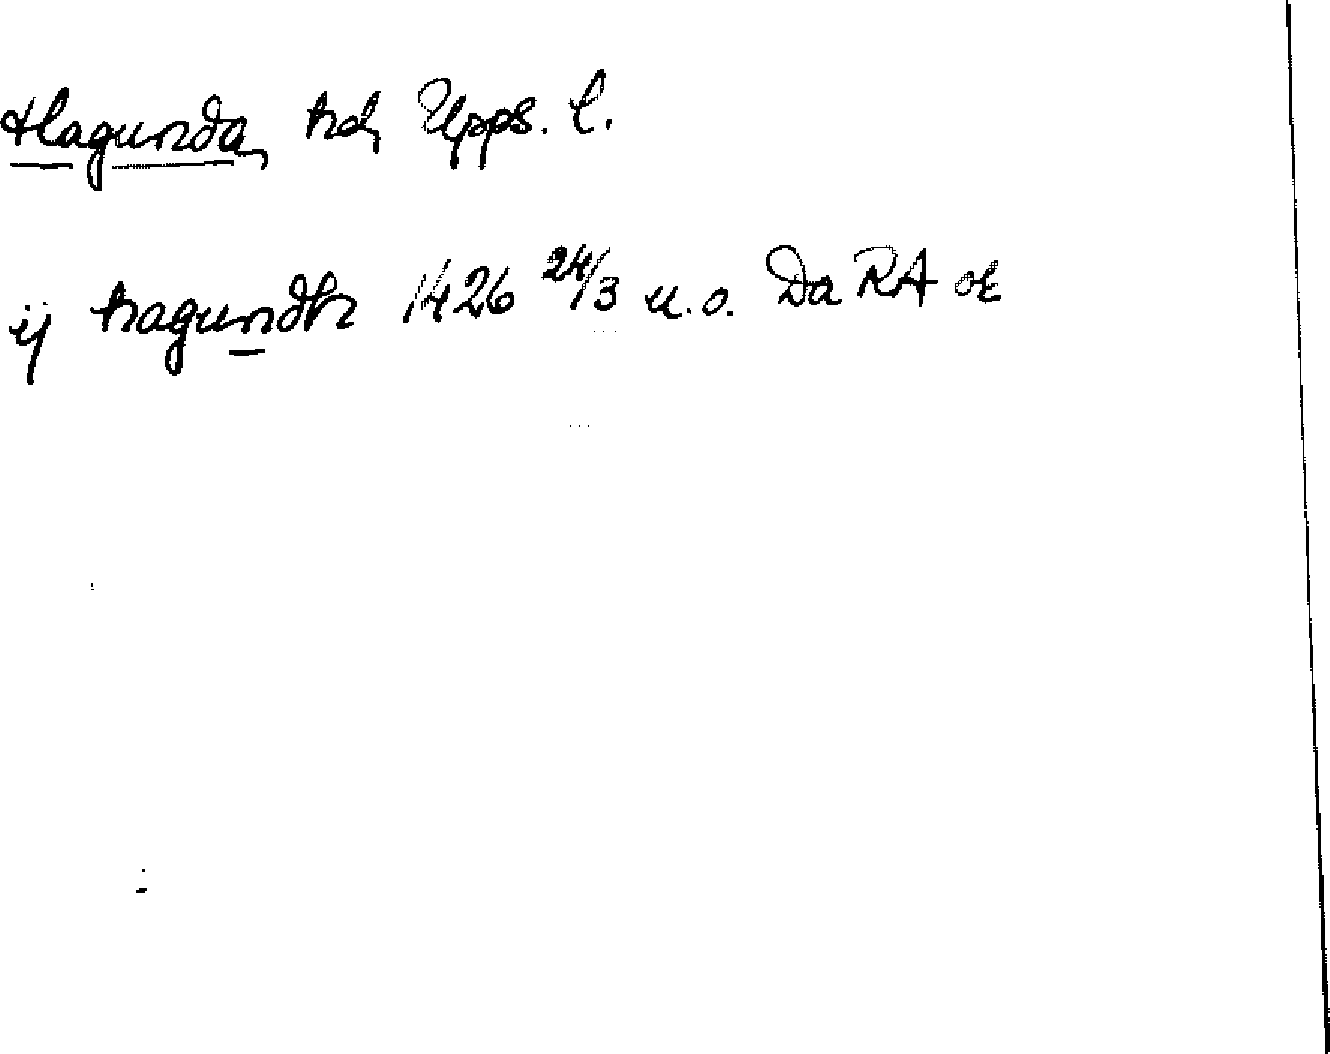 Hagunda, hd, Upps. l.
ij hagundh 1426 24/3 u.o. Da RA